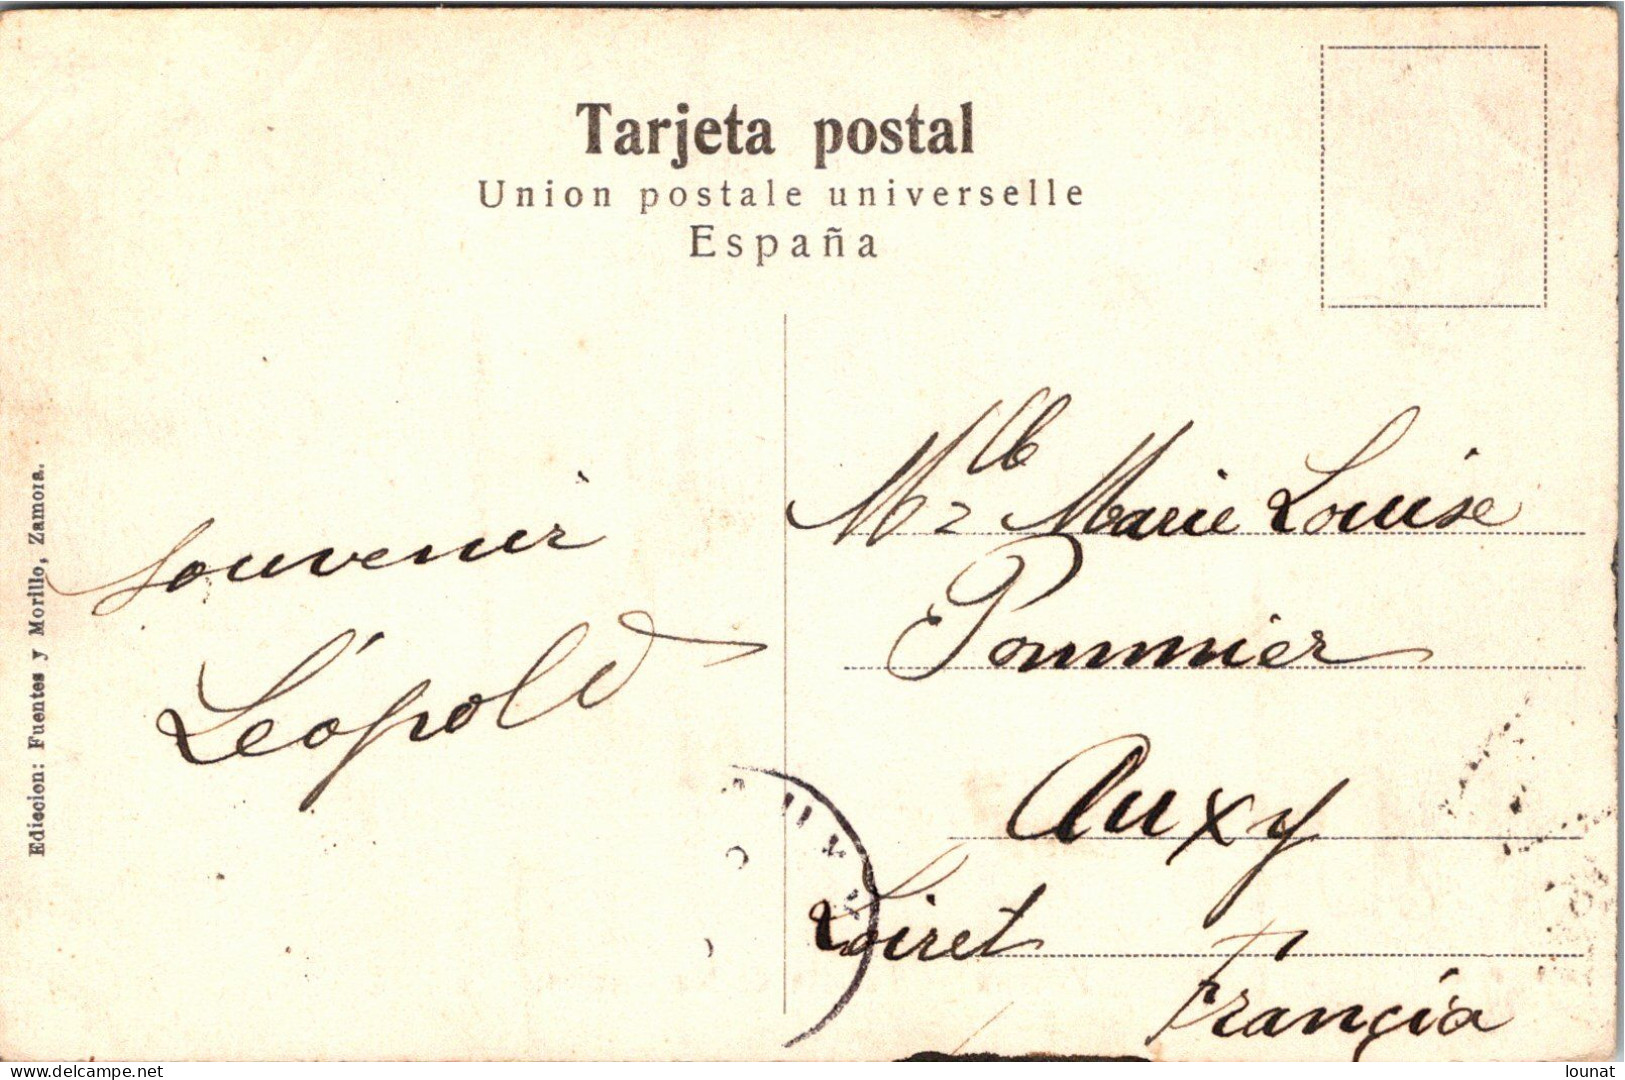 Tarjeta postal
Union postale universelle
España
Ediccion: Fuentes y Morillo, Zamora.
Souvenir
Léopold
Mlle Marie Louise
Pommier
Auxy
Loiret
Françia
delcampe.net
lounat